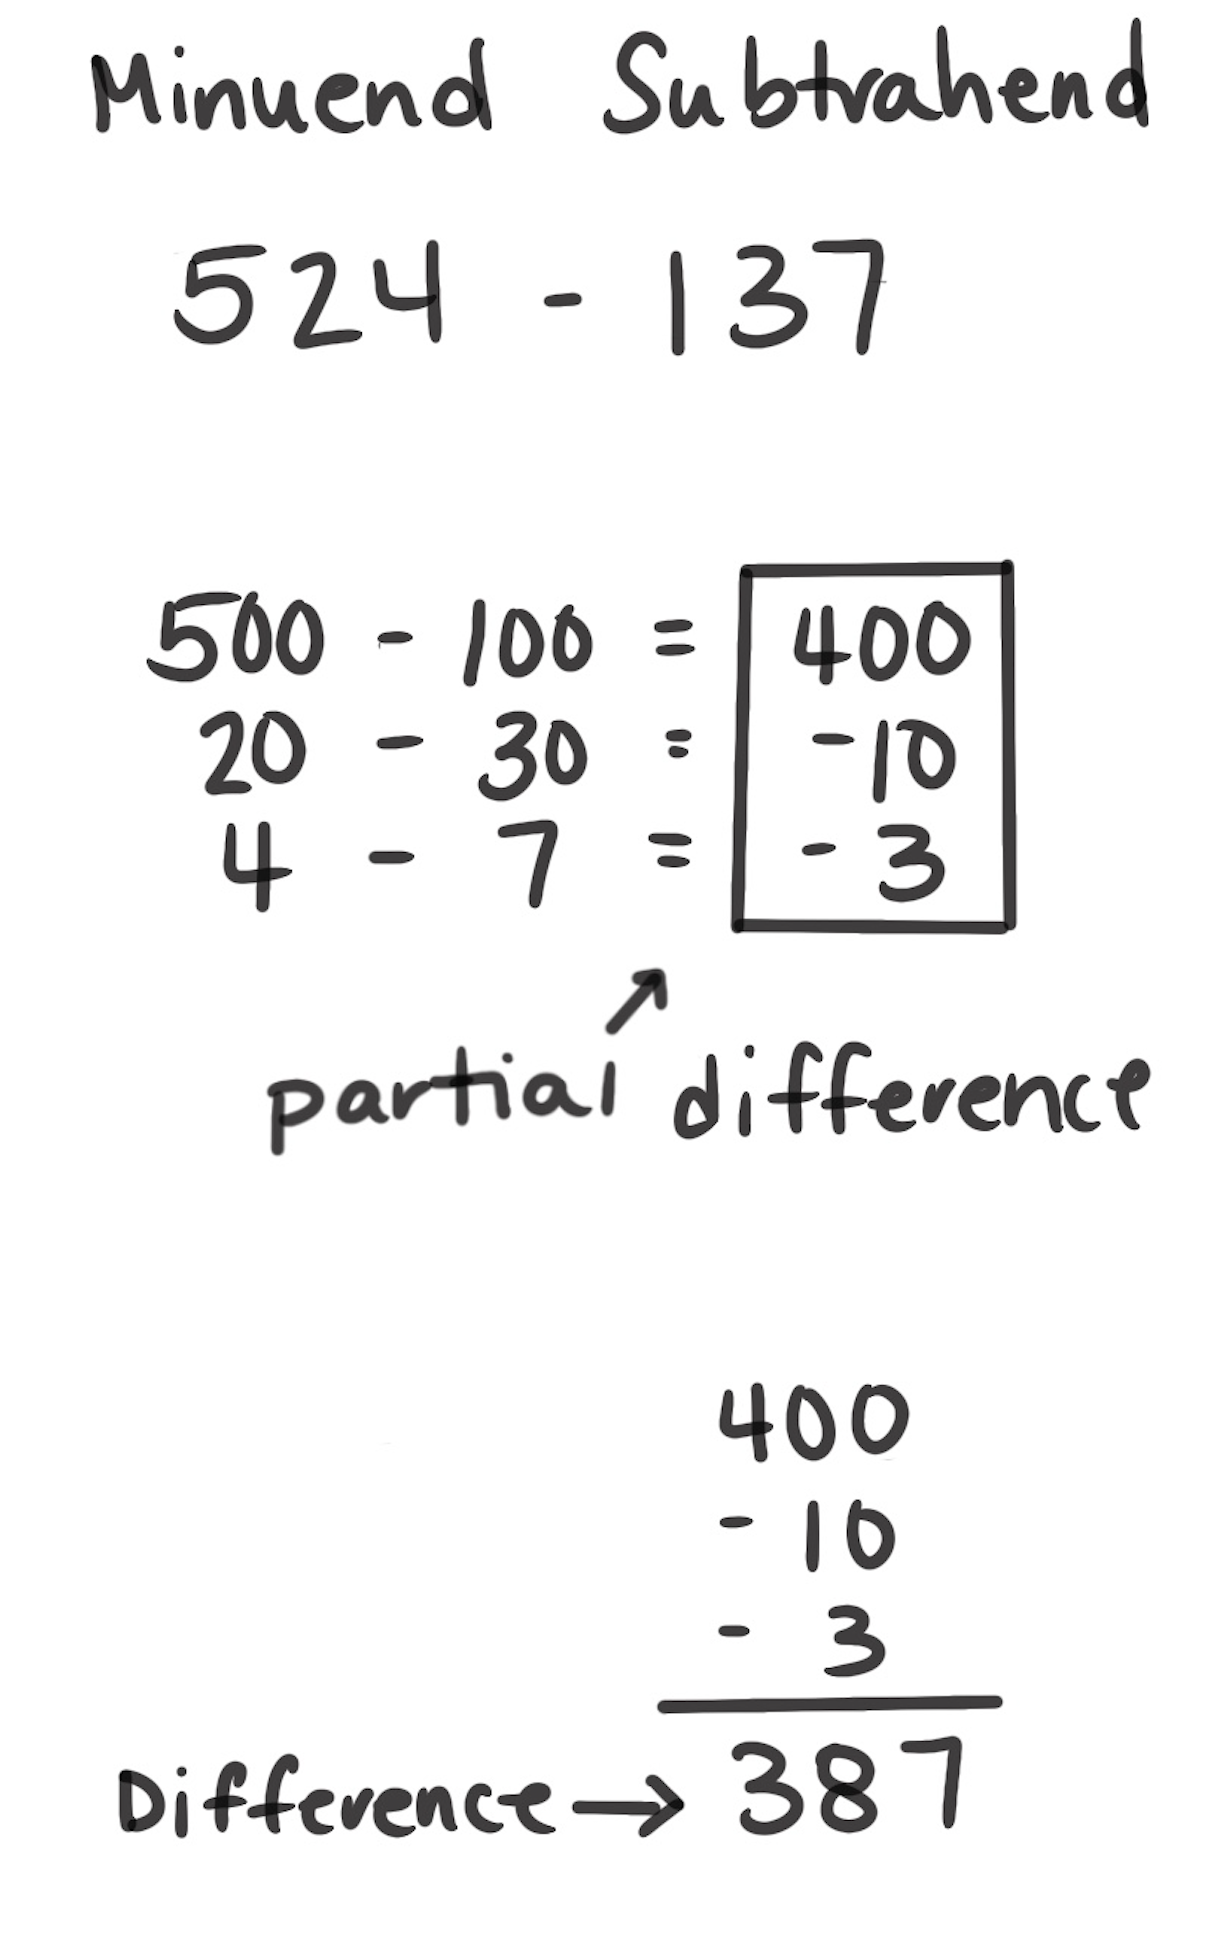 Minuend Subtrahend
524 - 137
500 - 100 = 400
20 - 30 = -10
4 - 7 = -3
partial difference
400
- 10
- 3
Difference → 387